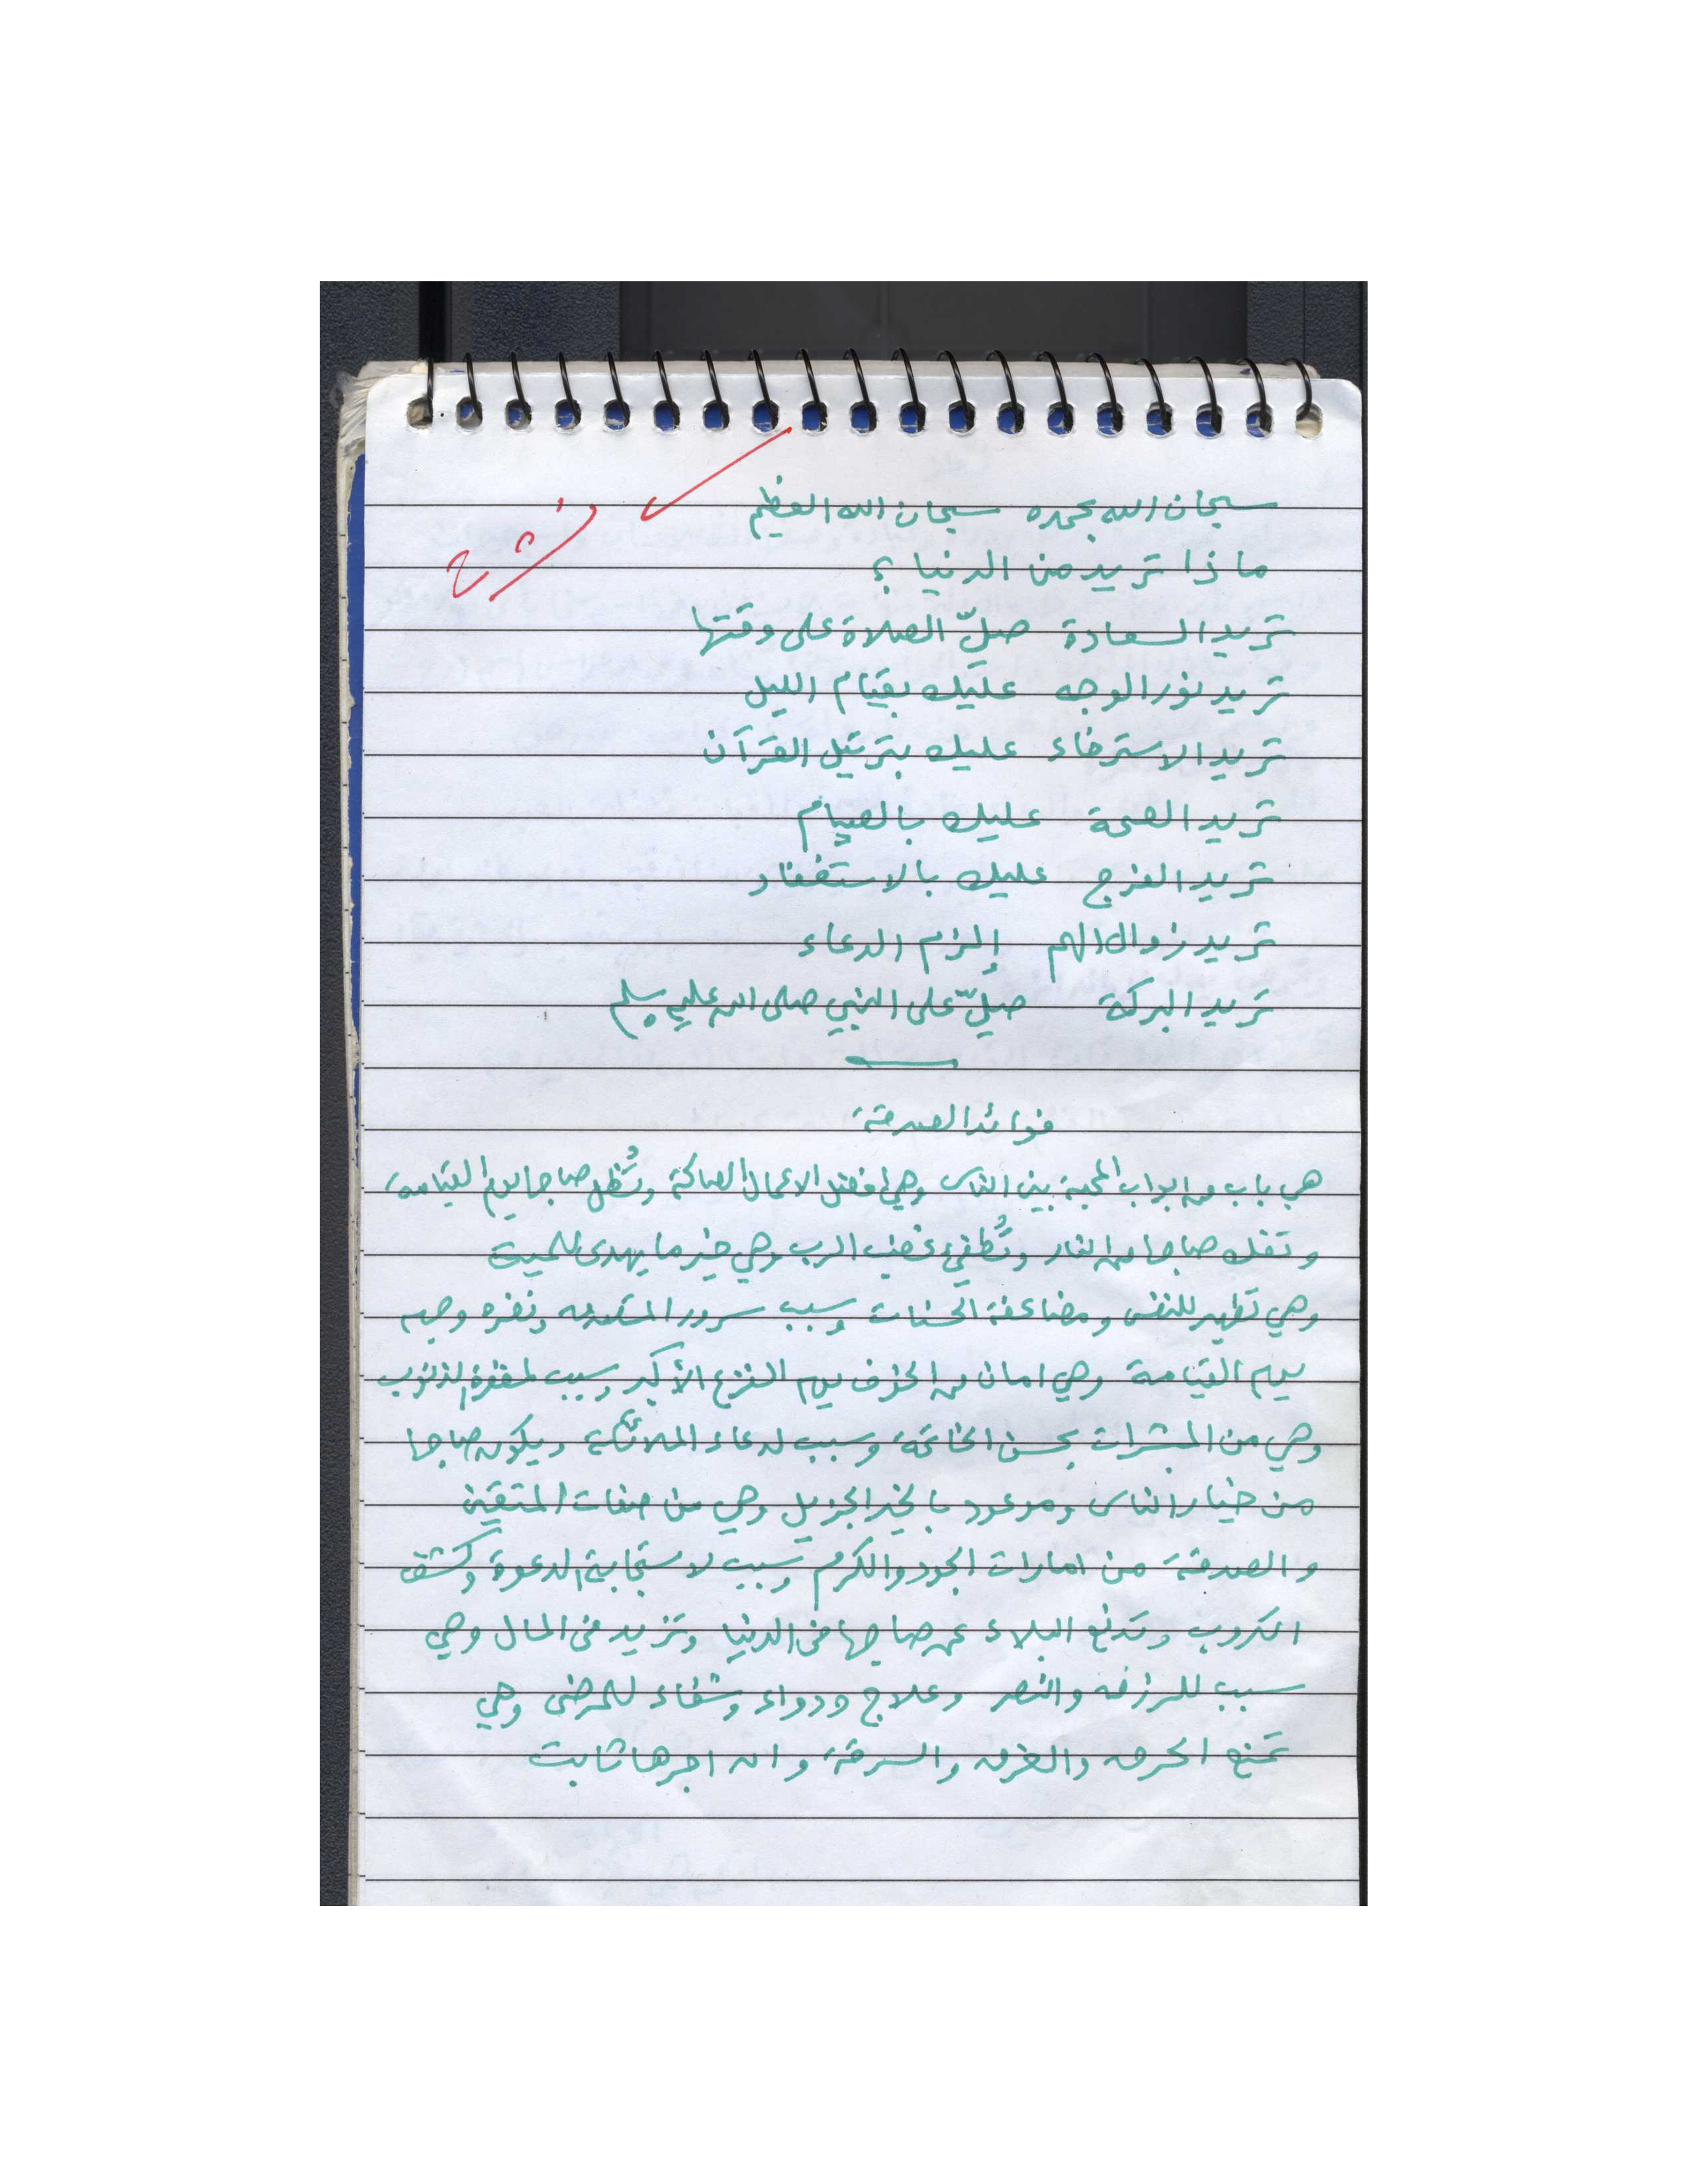 سبحان الله بحمده سبحان الله العظيم
ماذا تريد من الدنيا ؟
تريد السعادة صلّ الصلاة على وقتها
تريد نور الوجه عليك بقيام الليل
تريد الاسترخاء عليك بترتيل القرآن
تريد الصحة عليك بالصيام
تريد الفرج عليك بالاستغفار
تريد زوال الهم إلزم الدعاء
تريد البركة صلّ على النبي صلى الله عليه وسلم
فوائد الصدقة
هي باب من ابواب المحبة بين الناس وهي افضل الاعمال الصالحة وتُظل صاحبها يوم القيامة
وتفك صاحبها من النار وتُطفيء غضب الرب وهي خير ما يهدى للميت
وهي تطهير للنفس ومضاعفة الحسنات وسبب سرور المتصدق ونضرة وجهه
يوم القيامة وهي امان من الخوف يوم الفزع الأكبر وسبب لمغفرة الذنوب
وهي من المبشرات بحسن الخاتمة وسبب لدعاء الملائكة ويكون صاحبها
من خيار الناس وموعود بالخير الجزيل وهي من صفات المتقين
والصدقة من امارات الجود والكرم وسبب لاستجابة الدعوة وكشف
الكروب وتدفع البلاء عن صاحبها في الدنيا وتزيد في المال وهي
سبب للرزق والنصر وعلاج ودواء وشفاء للمرضى وهي
تمنع الحرق والغرق والسرقة وان اجرها ثابت